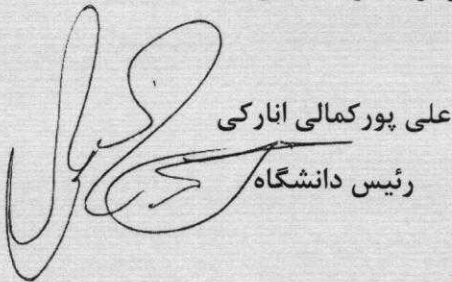 علی پورکمالی انارکی
رئیس دانشگاه